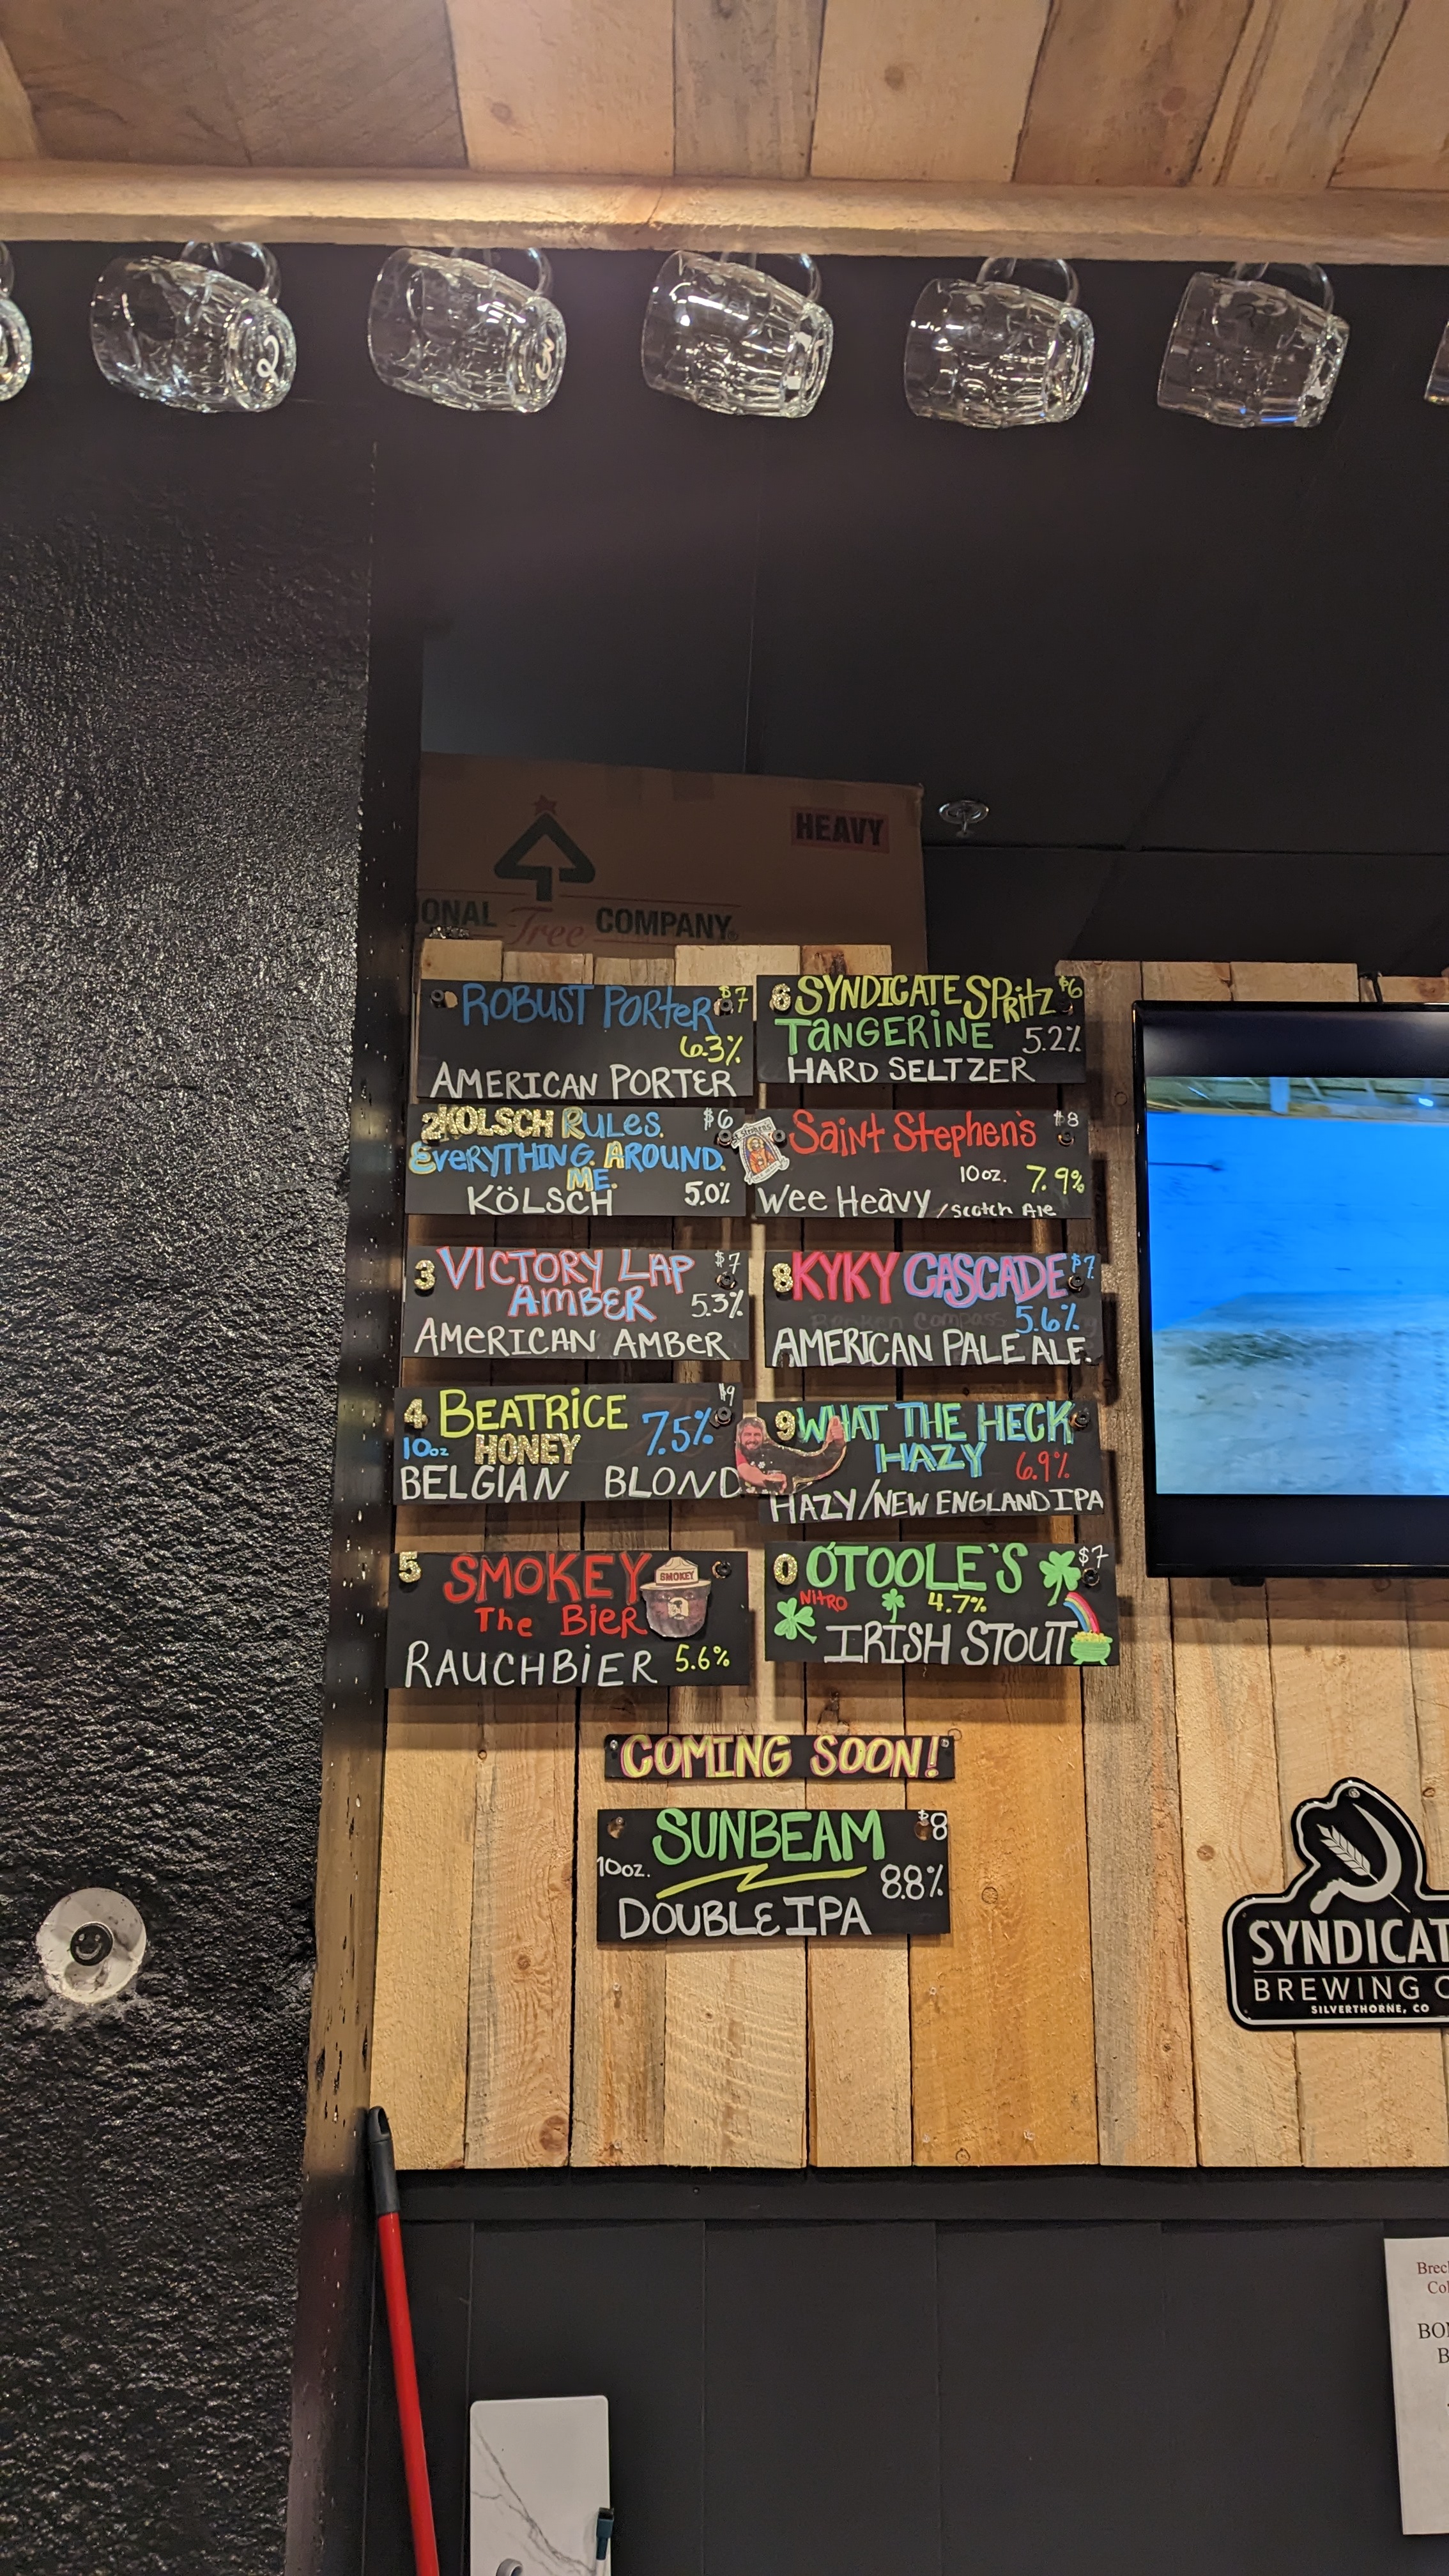 2
3
HEAVY
ONAL Tree COMPANY
ROBUST PORTER $7
6.3%
AMERICAN PORTER
2 KOLSCH RULES $6
EVERYTHING AROUND
ME.
KÖLSCH 5.0%
3 VICTORY LAP $7
AMBER 5.3%
AMERICAN AMBER
4 BEATRICE $9
10oz HONEY 7.5%
BELGIAN BLOND
5 SMOKEY
SMOKEY
The BiER
RAUCHBiER 5.6%
6 SYNDICATE SPRitZ $6
TANGERiNE 5.2%
HARD SELTZER
Saint Stephen's $8
10oz. 7.9%
Wee Heavy / Scotch Ale
8 KYKY CASCADE $7
5.6%
AMERICAN PALE ALE
9 WHAT THE HECK
HAZY 6.9%
HAZY/NEW ENGLAND IPA
0 O'TOOLE'S $7
NITRO 4.7%
IRISH STOUT
COMING SOON!
SUNBEAM $8
10oz. 8.8%
DOUBLE IPA
SYNDICAT
BREWING C
SILVERTHORNE, CO
Brec
Col
BO
B